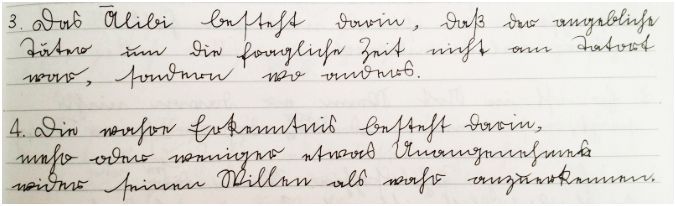 3. Das Alibi besteht darin, daß der angebliche
Täter um die fragliche Zeit nicht am Tatort
war, sondern wo anders.
4. Die wahre Erkenntnis besteht darin,
mehr oder weniger etwas Unangenehmes
wider seinen Willen als wahr anzuerkennen.